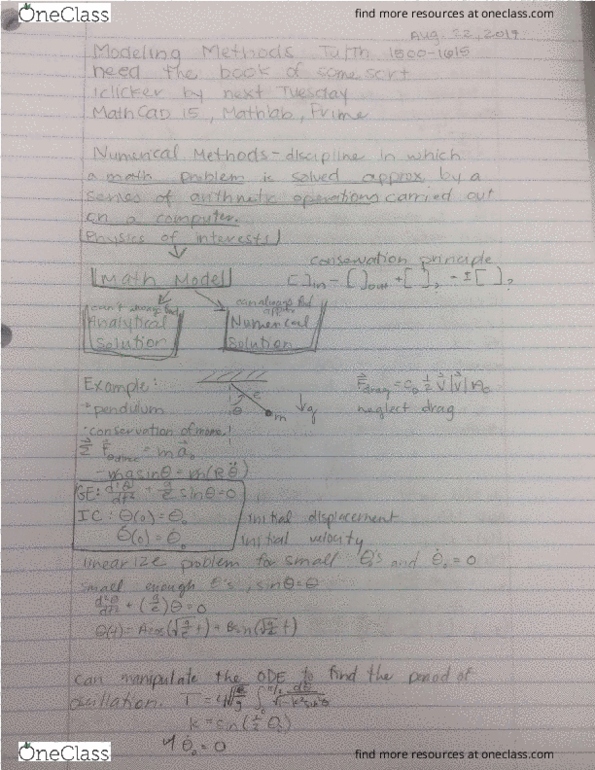 OneClass
find more resources at oneclass.com
Aug. 22, 2019
Modeling Methods Tu/Th 1500-1615
need the book of some sort
iclicker by next Tuesday
MathCad 15, Mathlab, Prime
Numerical Methods - discipline in which
a math problem is solved approx. by a
series of arithmetic operations carried out
on a computer.
Physics of interests
conservation principle
Math Model
[ ]in - [ ]out + [ ]? = Σ[ ]?
can't always find
can always find approx
Analytical Solution
Numerical Solution
Example:
pendulum
θ
m
g
neglect drag
conservation of mom.!
-mg sinθ = m(ℓθ̈)
GE: d²θ/dt² + g/ℓ sinθ = 0
IC: θ(0) = θ₀ initial displacement
θ̇(0) = θ̇₀ initial velocity
linearize problem for small θ's and θ̇₀ = 0
small enough θ's, sinθ = θ
d²θ/dt² + (g/ℓ)θ = 0
θ(t) = A cos(√(g/ℓ) t) + B sin(√(g/ℓ) t)
can manipulate the ODE to find the period of
oscillation.
k = sin(½ θ₀)
θ̇₀ = 0
OneClass
find more resources at oneclass.com